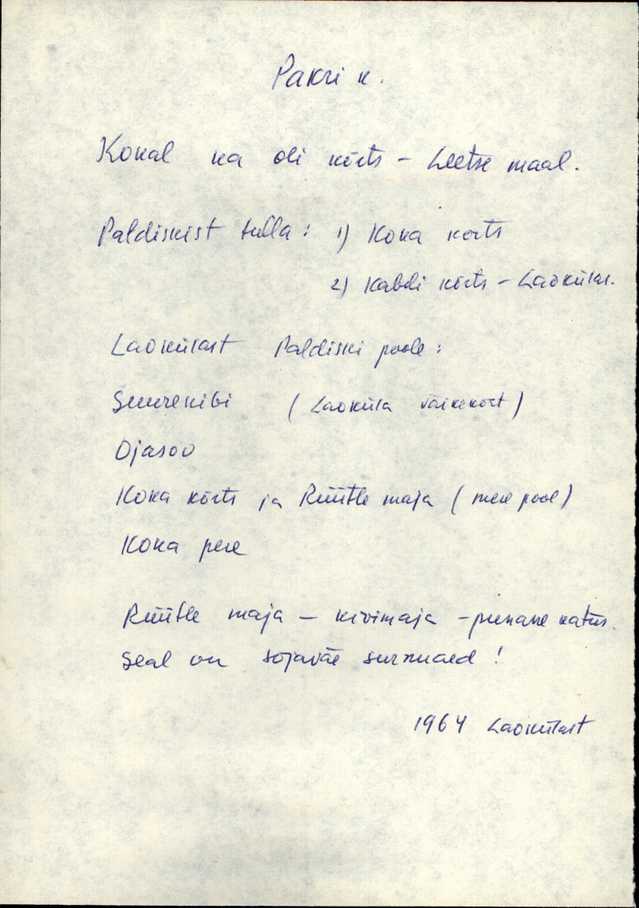 Pakri k.
Kokal ka oli kõrts - Leetse maal.
Paldiskist tulla: 1) Koka kõrts
2) Kabli kõrts - Laokülas.
Laokülast Paldiski poole:
Suurekibi (Laoküla väikekõrt)
Ojasoo
Koka kõrts ja Rüütle maja (mere pool)
Koka pere
Rüütle maja - kivimaja - punane katus.
Seal on sõjaväe surnuaed!
1964 Laokülast